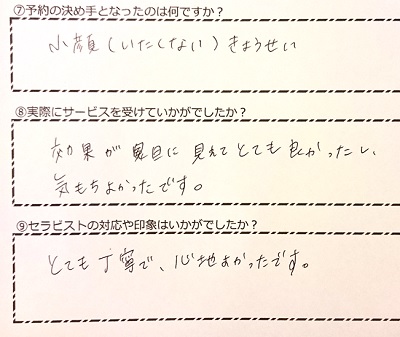 ⑦予約の決め手となったのは何ですか？
小顔(いたくない)きょうせい
⑧実際にサービスを受けていかがでしたか？
効果が目に見えてとても良かったし、
気もちよかったです。
⑨セラピストの対応や印象はいかがでしたか？
とても丁寧で、心地よかったです。